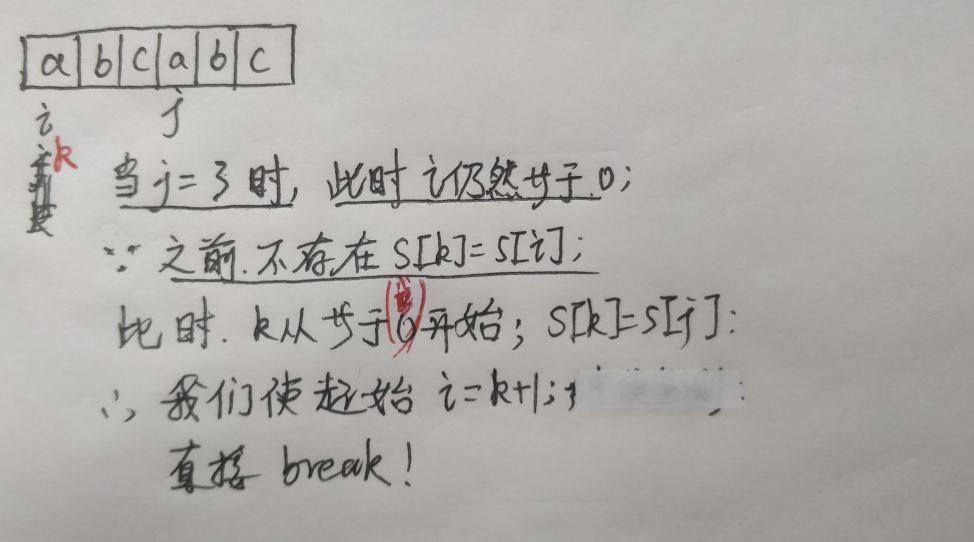 a b c a b c
i j
k
当 j=3 时, 此时 i 仍然等于 0;
∵ 之前.不存在 S[k]=S[i];
此时. k从等于(0)开始; S[k]=S[j]:
∴ 我们使起始 i=k+1;
直接 break!